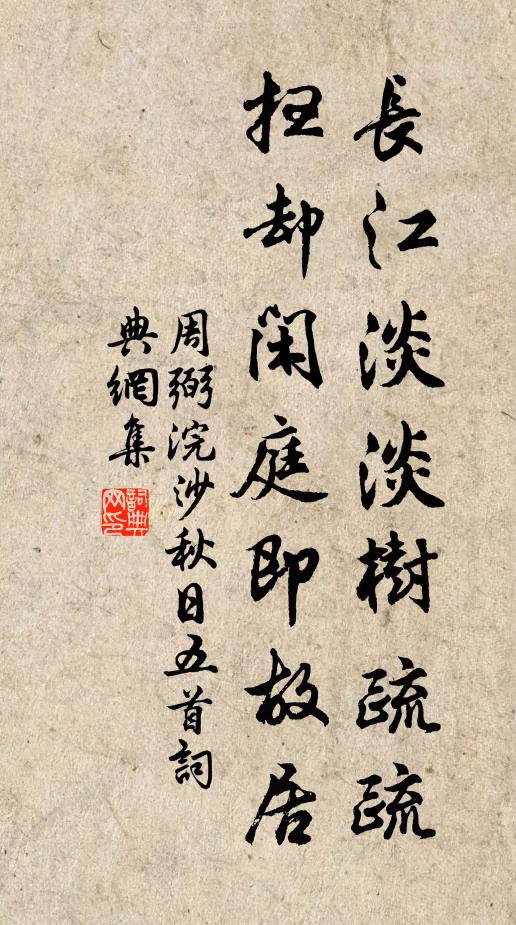 長江淡淡樹疏疏
掃却閑庭即故居
周弼浣沙秋日五首詞
典網集
詞典網印